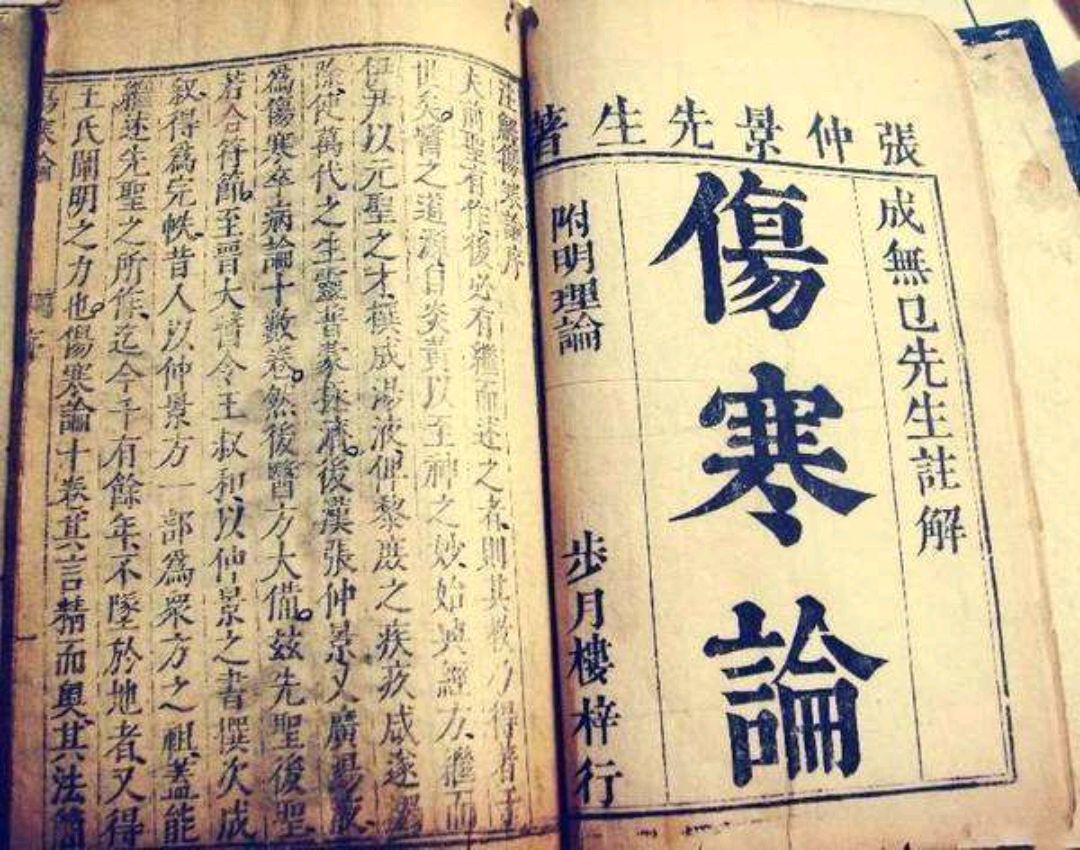 張仲景先生著
成無已先生註解
傷寒論
附明理論
步月樓梓行
註解傷寒論序
夫前聖有作後必有繼而述之者則其教乃得著于
世矣醫之道源自炎黃以至神之妙始興經方繼而
伊尹以元聖之才撰成湯液俾黎庶之疾疢咸遂蠲
除使萬代之生靈普蒙拯濟後漢張仲景又廣湯液
爲傷寒卒病論十數卷然後醫方大備茲先聖後聖
若合符節至晉大醫令王叔和以仲景之書撰次成
叙得爲完帙昔人以仲景方一部爲眾方之祖蓋能
繼述先聖之所作迄今千有餘年不墜於地者又得
王氏闡明之力也傷寒論十卷其言精而奧其法簡
傷寒論